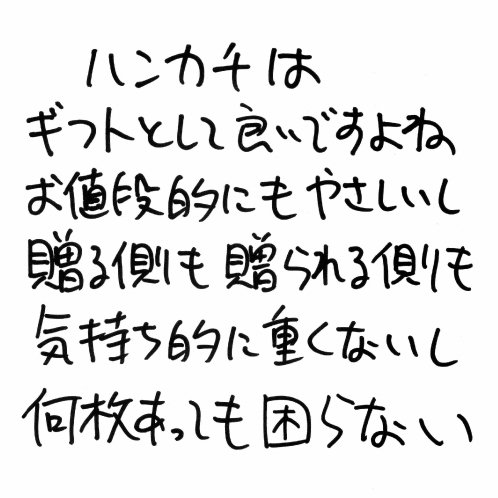 ハンカチは
ギフトとして良いですよね、
お値段的にもやさしいし
贈る側も贈られる側も
気持ち的に重くないし
何枚あっても困らない